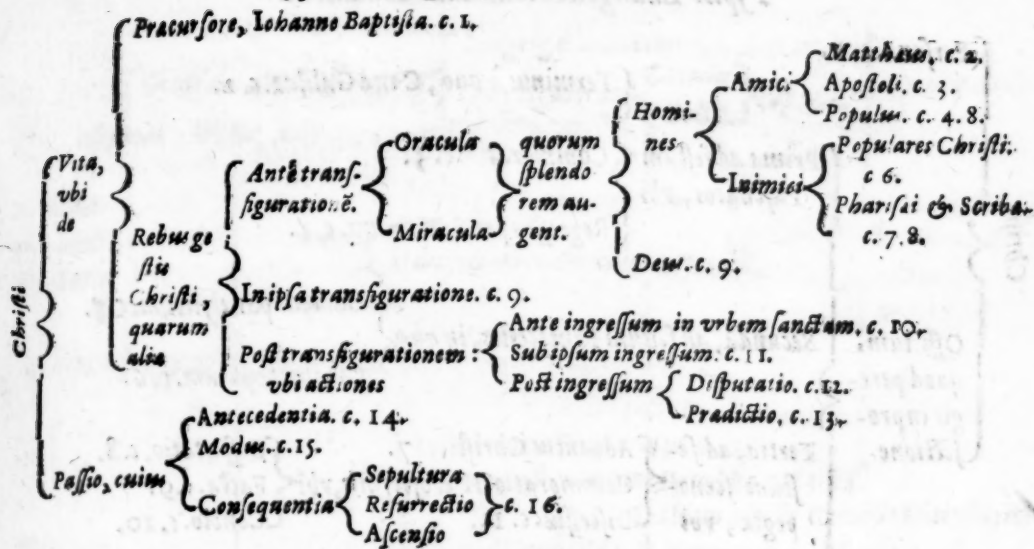 Præcursore, Iohanne Baptista. c. 1.
Christi
Vita,
vbi
de
Rebus ge
stis
Christi,
quarum
aliæ
Ante trans-
figurationẽ.
Oracula
Miracula
quorum
splendo
rem au-
gent.
Homi-
nes
Amici
Mattheus. c. 2.
Apostoli. c. 3.
Populus. c. 4. 8.
Inimici
Populares Christi.
c 6.
Pharisæi & Scribæ.
c. 7. 8.
Deus. c. 9.
In ipsa transfiguratione. c. 9.
Post transfigurationem :
vbi actiones
Ante ingressum in vrbem sanctam. c. 10.
Sub ipsum ingressum. c. 11.
Post ingressum
Disputatio. c. 12.
Prædictio, c. 13.
Passio, cuius
Antecedentia. c. 14.
Modus. c. 15.
Consequentia
Sepultura
Resurrectio
Ascensio
c. 16.